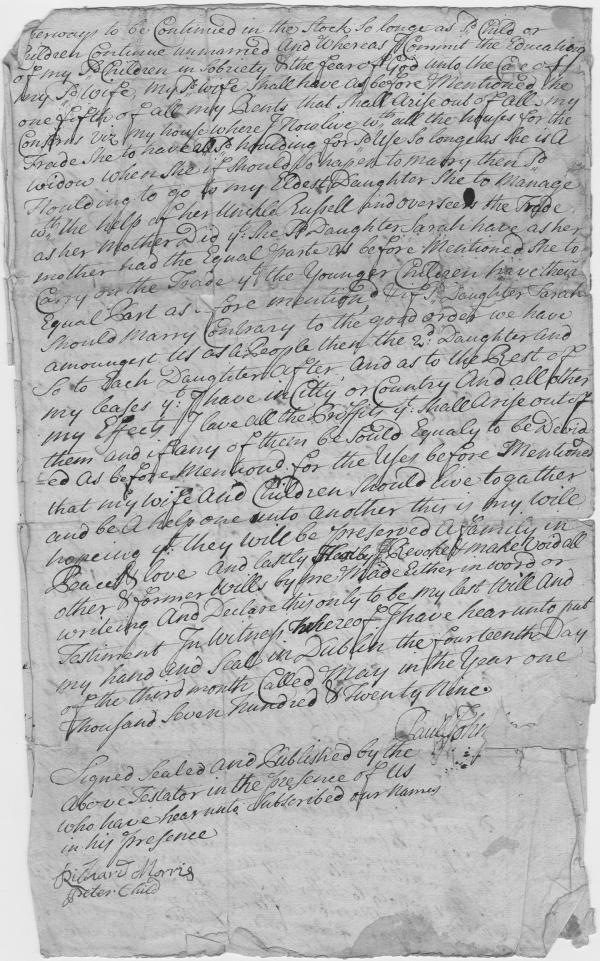 erways to be Continued in the Stock So longe as Sd Child or
Children Continue unmarried And Whereas I Commit the Education
of my Sd Children in Sobriety & the fear of God unto the Care of
my Sd Wife, my Sd Wife Shall have as before Mentioned the
one fifth of all my Rents that Shall Arise out of all my
Conserns viz my house where I Now live wth all the houses for the
Trade She to have all Sd houlding for Sd Use So longe as She is A
widow when She if Should So hapen to marry then Sd
Houlding to go to my Eldest Daughter She to Manage
wth the help of her Unckle Russell and overseers the Trade
as her Mother Did yt She Sd Daughter Sarah have as her
mother had the Equal Parte as before Mentioned She to
Carry on the Trade yt the Younger Children have their
Equal Part as fore mentiond & if Sd Daughter Sarah
Should Marry Contrary to the good order we have
amoungest Us as a People then the 2d Daughter and
So to Each Daughter After, And as to the Rest of
my leases yt I have in Citty or Country And all other
my Effects I lave all the Proffits yt Shall Arise out of
them and if any of them be Sould Equaly to be Devid
=ed as before Mentiond for the Uses before Mentioned
that my wife And Children Should live togather
and be A help one unto another this is my will
hopeing yt they will be Preserved A family in
Peace & love And lastly I Revoke & make Void all
other & former Wills by me Made Either in word or
writeing And Declare this only to be my last Will And
Testiment In Witness whereof I have hear unto put
my hand and Seal in Dublin the fourteenth Day
of the third month Called May in the Year one
Thousand Seven hundred & Twenty Nine
Paul John
Signed Sealed and Published by the
above Testator in the Presence of Us
who have hear unto Subscribed our names
in his Presence
Richard Morris
Peter Child